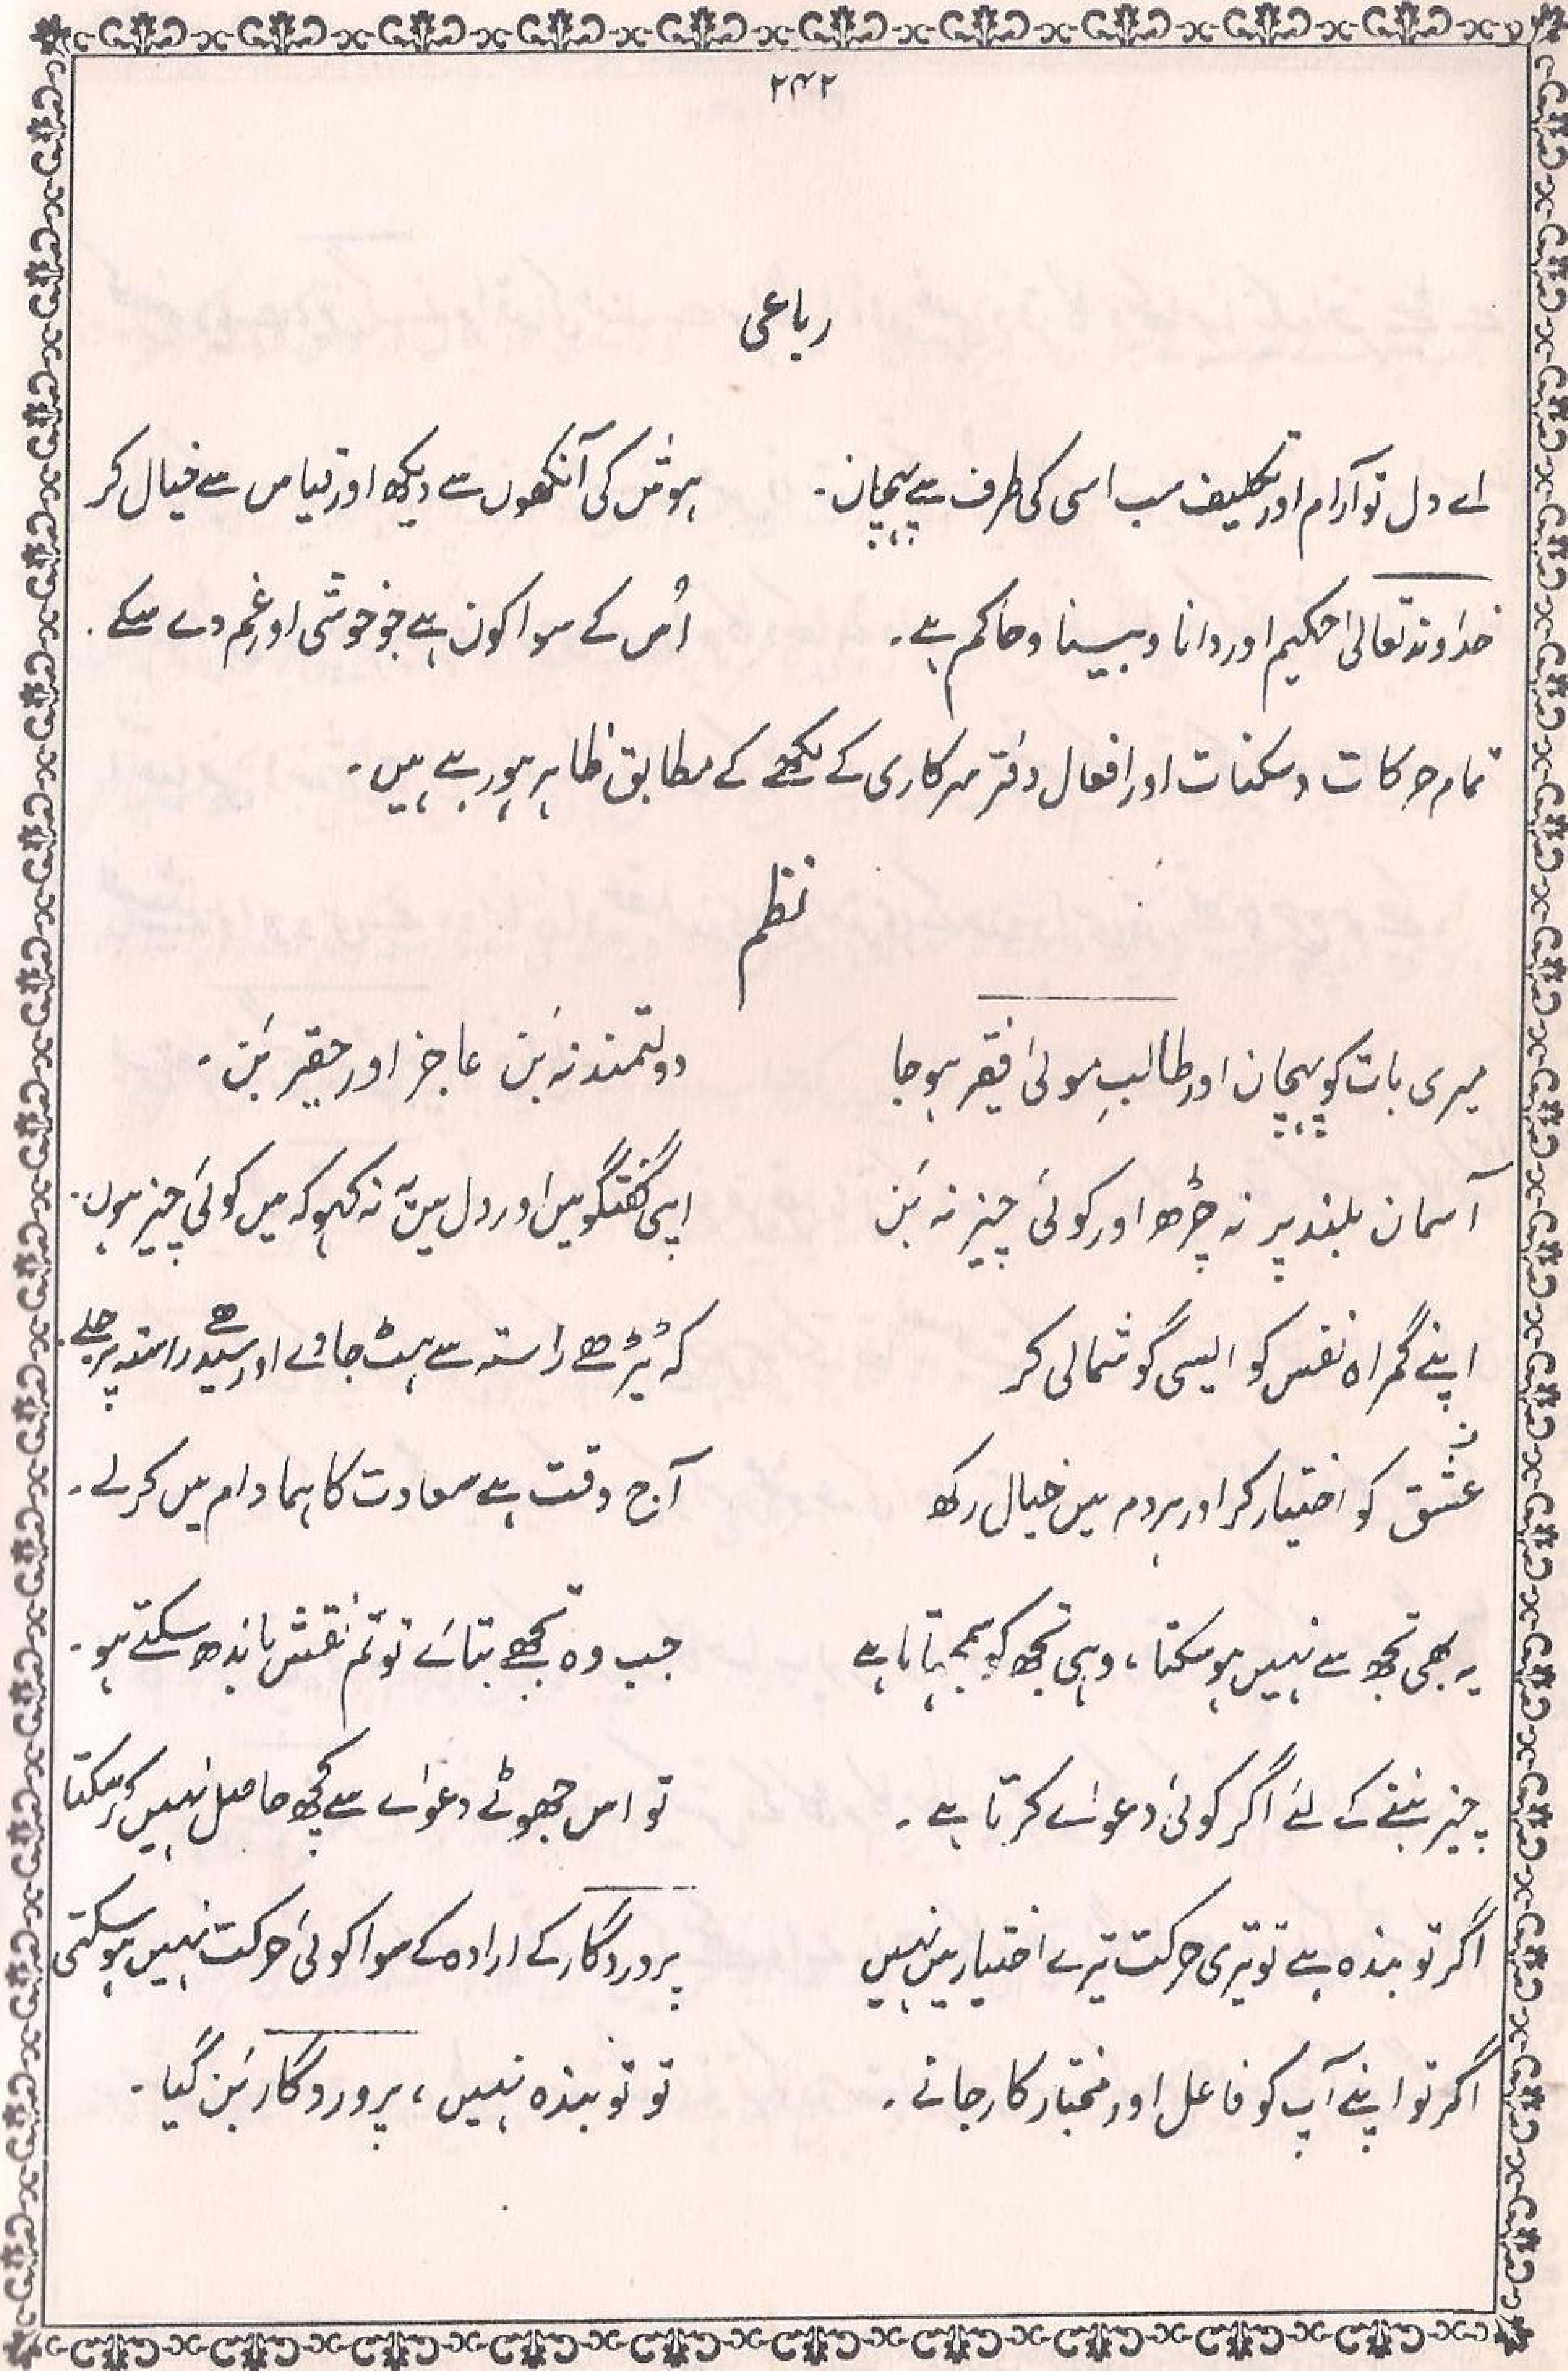 ۲۴۲
رباعی
اے دل تو آرام اور تکلیف سب اسی کی طرف سے پہچان۔ ہوش کی آنکھوں سے دیکھ اور قیاس سے خیال کر
خداوند تعالیٰ حکیم اور دانا و بینا و حاکم ہے۔ اُس کے سوا کون ہے جو خوشی اور غم دے سکے۔
تمام حرکات و سکنات اور افعال دفتر سرکاری کے لکھے کے مطابق ظاہر ہو رہے ہیں۔
نظم
میری بات کو پہچان اور طالبِ مولیٰ فقیر ہو جا دولتمند نہ بَن عاجز اور حقیر بَن۔
آسمان بلند پر نہ چڑھ اور کوئی چیز نہ بَن اپنی گفتگو میں اور دل میں نہ کہو کہ میں کوئی چیز ہوں۔
اپنے گمراہ نفس کو ایسی گوشمالی کر کہ ٹیڑھے راستہ سے ہٹ جاوے اور سیدھے راستہ پر چلے۔
عشق کو اختیار کر اور ہر دم میں خیال رکھ آج وقت ہے سعادت کا ہما دام میں کر لے۔
یہ بھی تجھ سے نہیں ہو سکتا، وہی تجھ کو سمجھاتا ہے جب وہ تجھے بتائے تو تم نقش باندھ سکتے ہو۔
چیز بننے کے لئے اگر کوئی دعوٰے کرتا ہے۔ تو اس جھوٹے دعوٰے سے کچھ حاصل نہیں کر سکتا
اگر تو بندہ ہے تو تیری حرکت تیرے اختیار میں نہیں پروردگار کے ارادہ کے سوا کوئی حرکت نہیں ہو سکتی
اگر تو اپنے آپ کو فاعل اور مختار کار جانے۔ تو تو بندہ نہیں، پروردگار بَن گیا۔